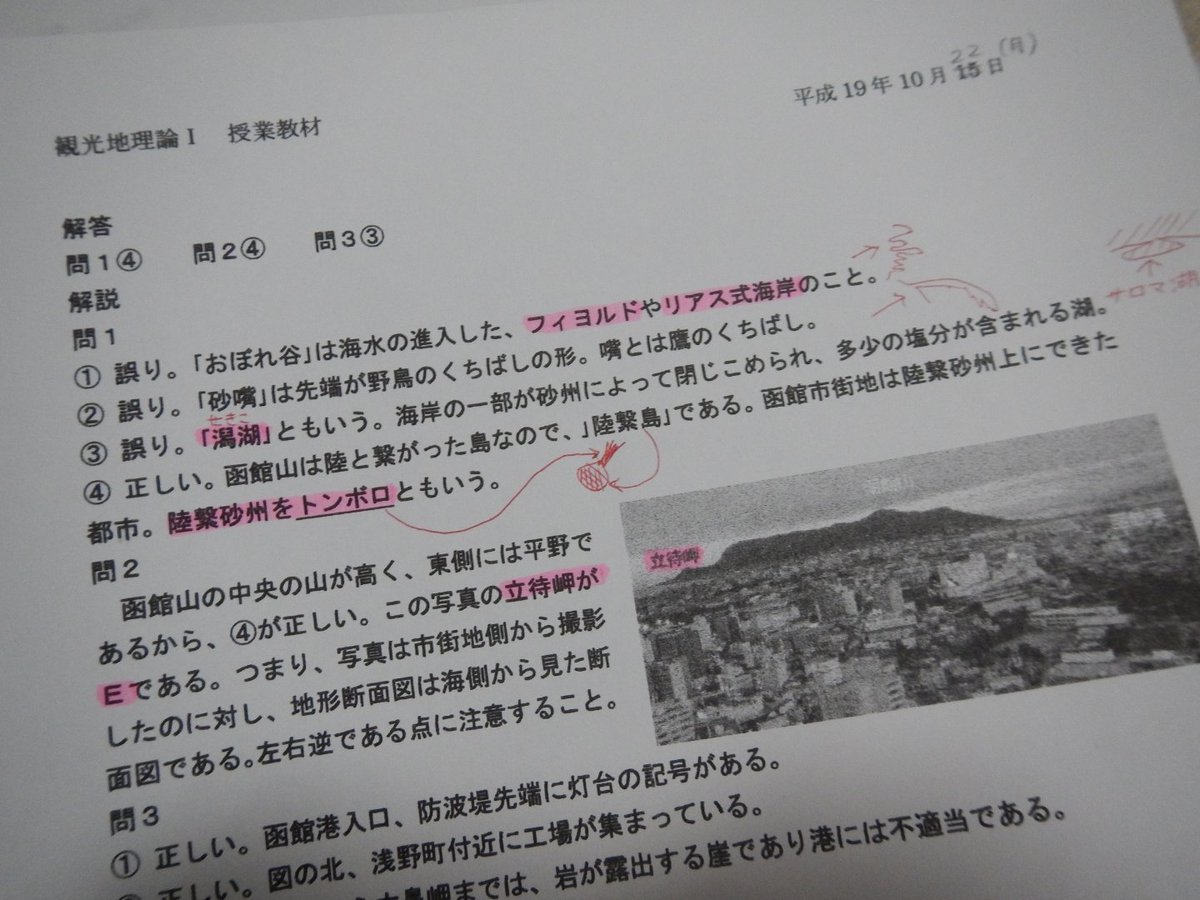 22 (月)
平成19年10月15日
観光地理論Ⅰ 授業教材
解答
問1④ 問2④ 問3③
解説
問1
① 誤り。「おぼれ谷」は海水の進入した、フィヨルドやリアス式海岸のこと。
② 誤り。「砂嘴」は先端が野鳥のくちばしの形。嘴とは鷹のくちばし。
サロマ湖
せきこ
③ 誤り。「潟湖」ともいう。海岸の一部が砂州によって閉じこめられ、多少の塩分が含まれる湖。
④ 正しい。函館山は陸と繋がった島なので、」陸繋島」である。函館市街地は陸繋砂州上にできた
都市。陸繋砂州をトンボロともいう。
問2
函館山の中央の山が高く、東側には平野で
あるから、④が正しい。この写真の立待岬が
Eである。つまり、写真は市街地側から撮影
したのに対し、地形断面図は海側から見た断
面図である。左右逆である点に注意すること。
立待岬
問3
① 正しい。函館港入口、防波堤先端に灯台の記号がある。
正しい。図の北、浅野町付近に工場が集まっている。
鼻岬までは、岩が露出する崖であり港には不適当である。